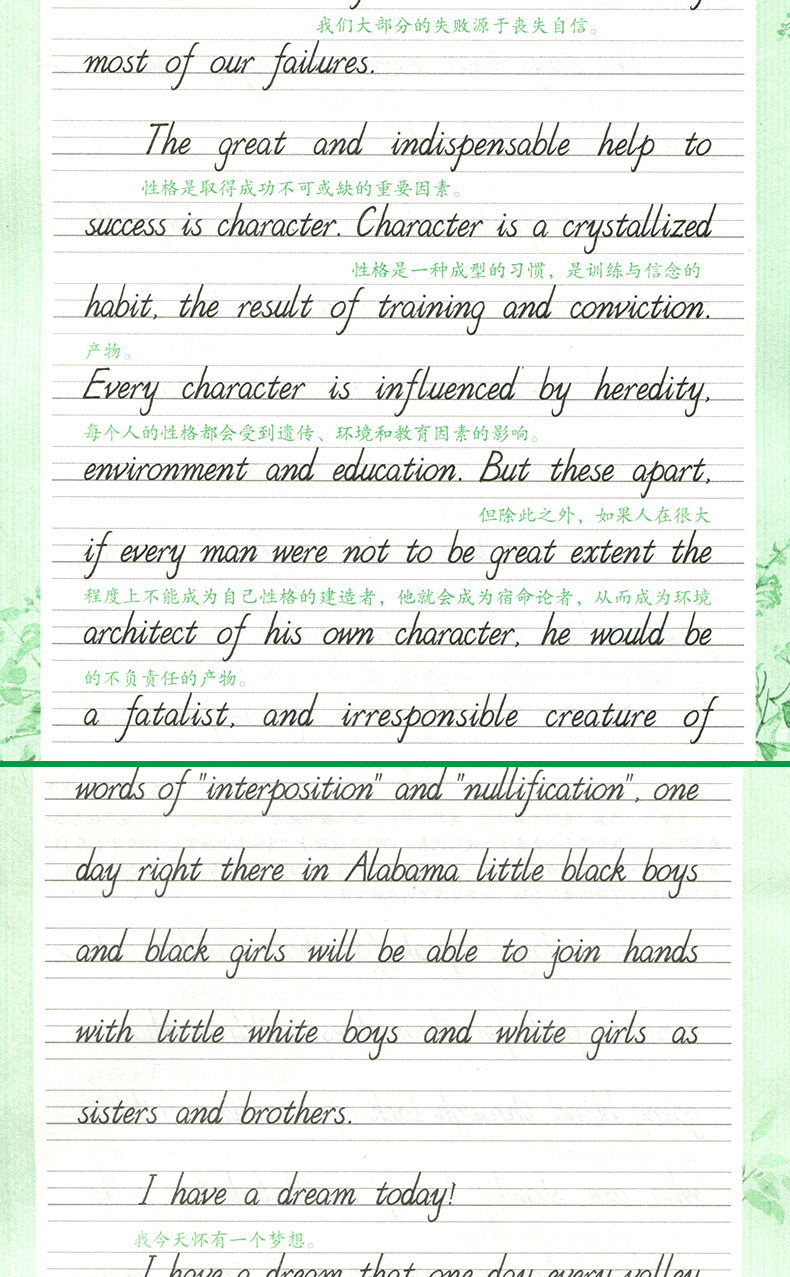 我们大部分的失败源于丧失自信。
most of our failures.
The great and indispensable help to
性格是取得成功不可或缺的重要因素。
success is character. Character is a crystallized
性格是一种成型的习惯，是训练与信念的
habit, the result of training and conviction.
产物。
Every character is influenced by heredity,
每个人的性格都会受到遗传、环境和教育因素的影响。
environment and education. But these apart,
但除此之外，如果人在很大
if every man were not to be great extent the
程度上不能成为自己性格的建造者，他就会成为宿命论者，从而成为环境
architect of his own character, he would be
的不负责任的产物。
a fatalist, and irresponsible creature of
words of "interposition" and "nullification", one
day right there in Alabama little black boys
and black girls will be able to join hands
with little white boys and white girls as
sisters and brothers.
I have a dream today!
我今天怀有一个梦想。
I have a dream that one day every valley